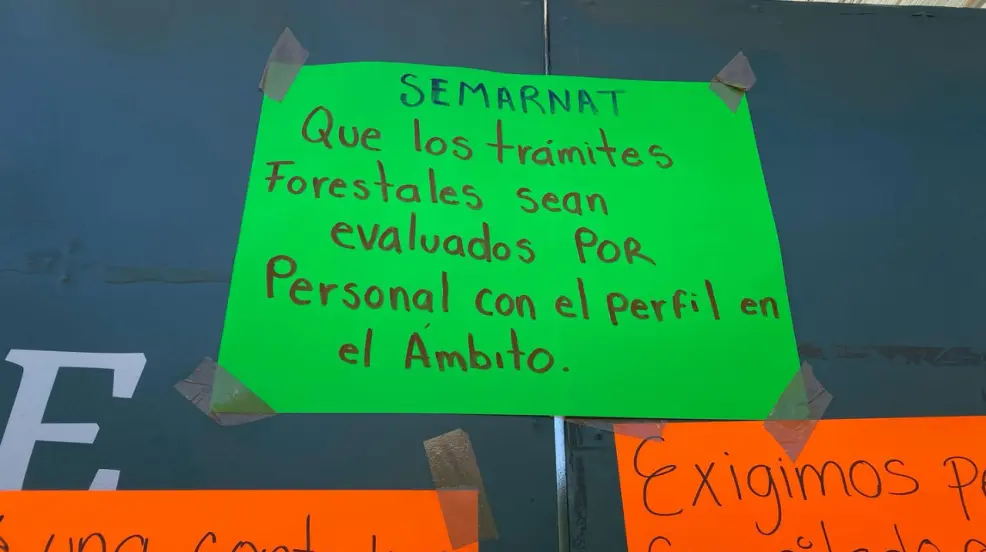 SEMARNAT
Que los trámites
Forestales sean
evaluados POR
Personal con el perfil en
el Ámbito.
E
Exigimos
una